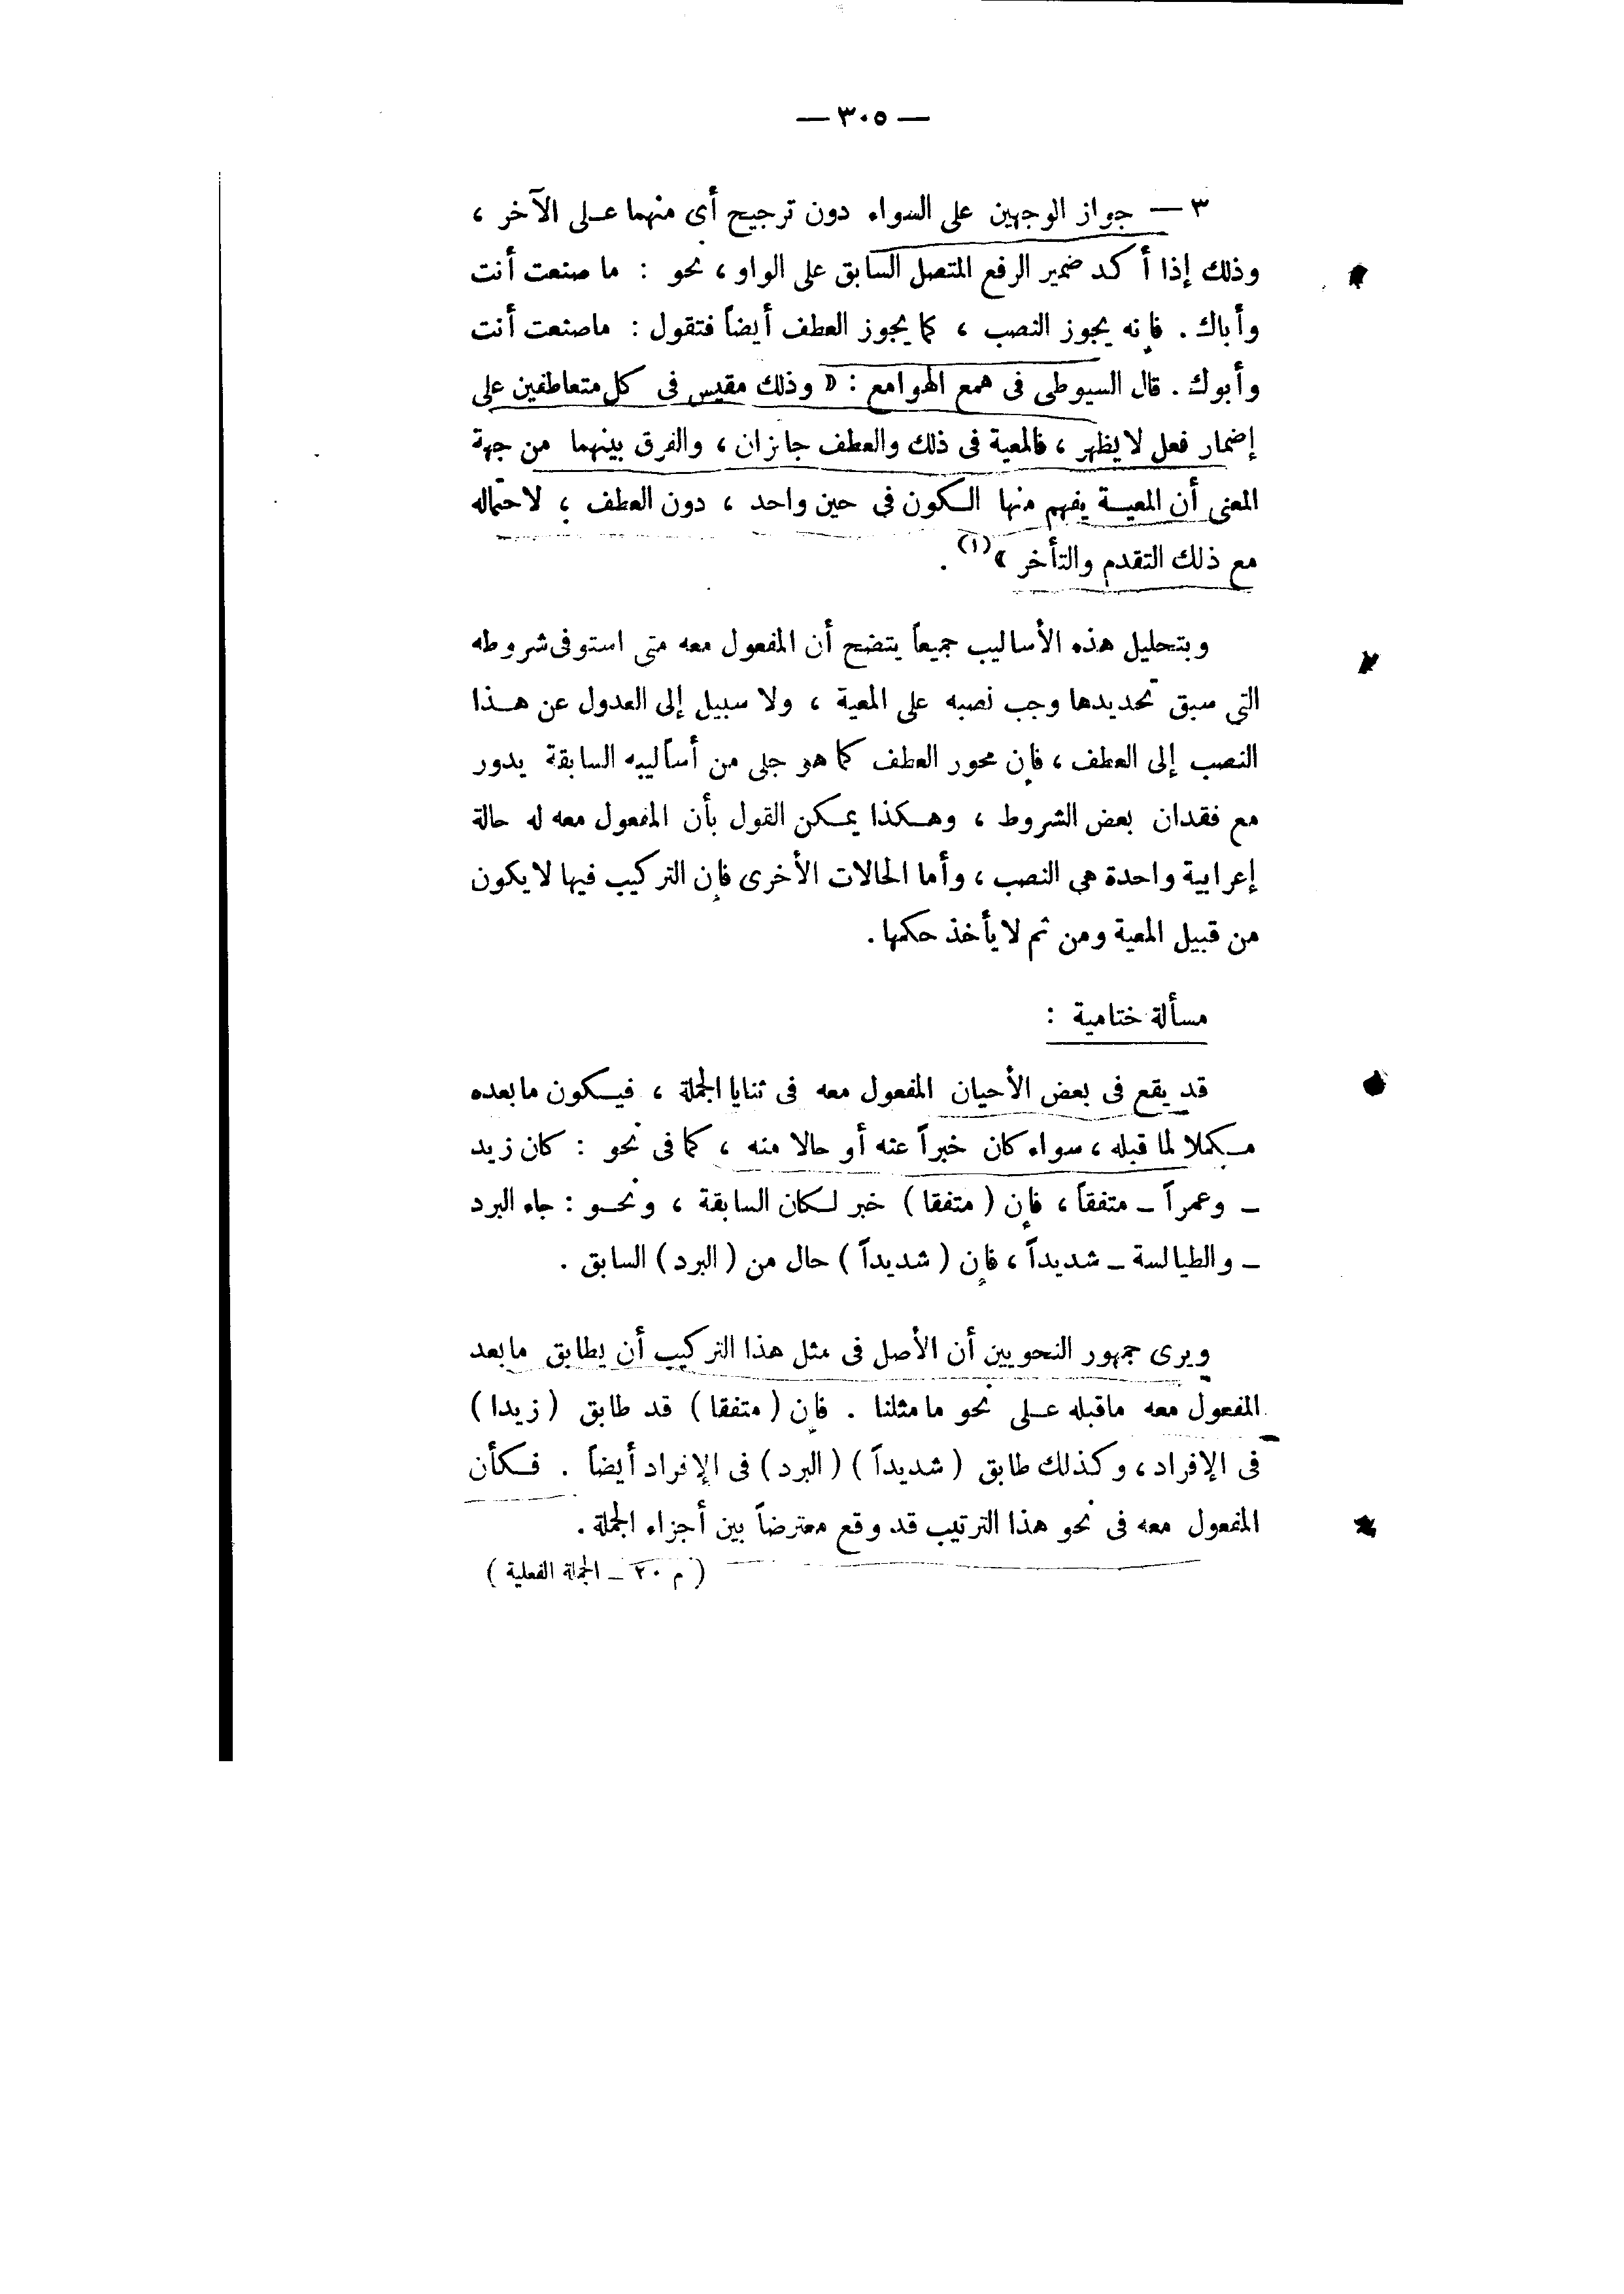 — ٣٠٥ —
٣ — جواز الوجهين على السواء دون ترجيح أى منهما على الآخر ،
وذلك إذا أكد ضمير الرفع المتصل السابق على الواو ، نحو : ما صنعت أنت
وأباك . فإنه يجوز النصب ، كما يجوز العطف أيضاً فتقول : ماصنعت أنت
وأبوك . قال السيوطى فى همع الهوامع : « وذلك مقيس فى كل متعاطفين على
إضمار فعل لا يظهر ، فالمعية فى ذلك والعطف جائزان ، والفرق بينهما من جهة
المعنى أن المعية يفهم منها الكون فى حين واحد ، دون العطف ؛ لاحتماله
مع ذلك التقدم والتأخر »(١) .
وبتحليل هذه الأساليب جميعاً يتضح أن المفعول معه متى استوفى شروطه
التى سبق تحديدها وجب نصبه على المعية ، ولا سبيل إلى العدول عن هذا
النصب إلى العطف ، فإن محور العطف كما هو جلى من أساليبه السابقة يدور
مع فقدان بعض الشروط ، وهكذا يمكن القول بأن المفعول معه له حالة
إعرابية واحدة هى النصب ، وأما الحالات الأخرى فإن التركيب فيها لا يكون
من قبيل المعية ومن ثم لا يأخذ حكمها .
مسألة ختامية :
قد يقع فى بعض الأحيان المفعول معه فى ثنايا الجملة ، فيكون مابعده
مكملا لما قبله ، سواء كان خبراً عنه أو حالا منه ، كما فى نحو : كان زيد
– وعمراً – متفقاً ، فإن ( متفقا ) خبر لكان السابقة ، ونحو : جاء البرد
– والطيالسة – شديداً ، فإن ( شديداً ) حال من ( البرد ) السابق .
ويرى جمهور النحويين أن الأصل فى مثل هذا التركيب أن يطابق مابعد
المفعول معه ماقبله على نحو مامثلنا . فإن ( متفقا ) قد طابق ( زيدا )
فى الإفراد ، وكذلك طابق ( شديداً ) ( البرد ) فى الإفراد أيضاً . فكأن
المفعول معه فى نحو هذا الترتيب قد وقع معترضاً بين أجزاء الجملة .
( م ٢٠ – الجملة الفعلية )